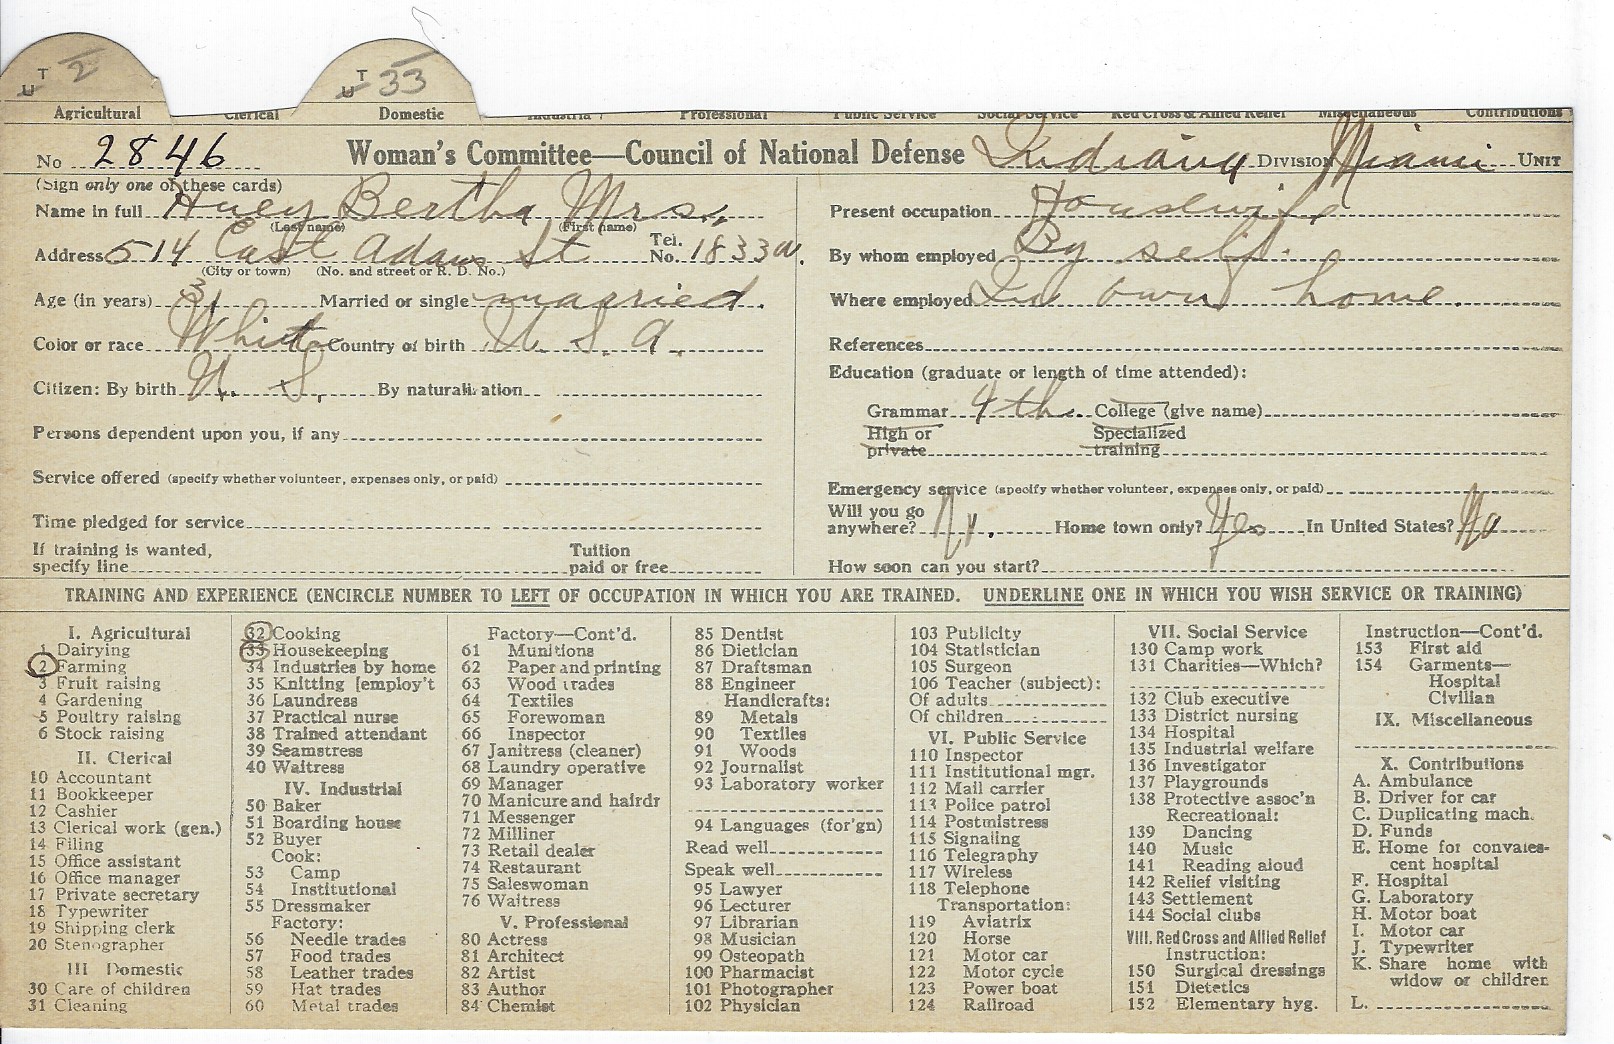 T 2 T 33
U U
Agricultural Clerical Domestic Industrial Professional Public Service Social Service Red Cross & Allied Relief Miscellaneous Contributions
No 2846 Woman's Committee—Council of National Defense Indiana DIVISION Miami UNIT
(Sign only one of these cards)
Name in full Huey Bertha Mrs.
(Last name) (First name)
Address 514 East Adams St Tel. No. 1833
(City or town) (No. and street or R. D. No.)
Age (in years) Married or single married.
Color or race White Country of birth U. S. A.
Citizen: By birth U. S. By naturalization
Persons dependent upon you, if any
Service offered (specify whether volunteer, expenses only, or paid)
Time pledged for service
If training is wanted, Tuition
specify line paid or free
Present occupation Housewife
By whom employed By self.
Where employed In own home.
References
Education (graduate or length of time attended):
Grammar 4th. College (give name)
High or Specialized
private training
Emergency service (specify whether volunteer, expenses only, or paid)
Will you go
anywhere? No. Home town only? Yes In United States? No
How soon can you start?
TRAINING AND EXPERIENCE (ENCIRCLE NUMBER TO LEFT OF OCCUPATION IN WHICH YOU ARE TRAINED. UNDERLINE ONE IN WHICH YOU WISH SERVICE OR TRAINING)
I. Agricultural
1 Dairying
2 Farming
3 Fruit raising
4 Gardening
5 Poultry raising
6 Stock raising
II. Clerical
10 Accountant
11 Bookkeeper
12 Cashier
13 Clerical work (gen.)
14 Filing
15 Office assistant
16 Office manager
17 Private secretary
18 Typewriter
19 Shipping clerk
20 Stenographer
III Domestic
30 Care of children
31 Cleaning
32 Cooking
33 Housekeeping
34 Industries by home
35 Knitting [employ't
36 Laundress
37 Practical nurse
38 Trained attendant
39 Seamstress
40 Waitress
IV. Industrial
50 Baker
51 Boarding house
52 Buyer
Cook:
53 Camp
54 Institutional
55 Dressmaker
Factory:
56 Needle trades
57 Food trades
58 Leather trades
59 Hat trades
60 Metal trades
Factory—Cont'd.
61 Munitions
62 Paper and printing
63 Wood trades
64 Textiles
65 Forewoman
66 Inspector
67 Janitress (cleaner)
68 Laundry operative
69 Manager
70 Manicure and hairdr
71 Messenger
72 Milliner
73 Retail dealer
74 Restaurant
75 Saleswoman
76 Waitress
V. Professional
80 Actress
81 Architect
82 Artist
83 Author
84 Chemist
85 Dentist
86 Dietician
87 Draftsman
88 Engineer
Handicrafts:
89 Metals
90 Textiles
91 Woods
92 Journalist
93 Laboratory worker
94 Languages (for'gn)
Read well
Speak well
95 Lawyer
96 Lecturer
97 Librarian
98 Musician
99 Osteopath
100 Pharmacist
101 Photographer
102 Physician
103 Publicity
104 Statistician
105 Surgeon
106 Teacher (subject):
Of adults
Of children
VI. Public Service
110 Inspector
111 Institutional mgr.
112 Mail carrier
113 Police patrol
114 Postmistress
115 Signaling
116 Telegraphy
117 Wireless
118 Telephone
Transportation:
119 Aviatrix
120 Horse
121 Motor car
122 Motor cycle
123 Power boat
124 Railroad
VII. Social Service
130 Camp work
131 Charities—Which?
132 Club executive
133 District nursing
134 Hospital
135 Industrial welfare
136 Investigator
137 Playgrounds
138 Protective assoc'n
Recreational:
139 Dancing
140 Music
141 Reading aloud
142 Relief visiting
143 Settlement
144 Social clubs
VIII. Red Cross and Allied Relief
Instruction:
150 Surgical dressings
151 Dietetics
152 Elementary hyg.
Instruction—Cont'd.
153 First aid
154 Garments—
Hospital
Civilian
IX. Miscellaneous
X. Contributions
A. Ambulance
B. Driver for car
C. Duplicating mach.
D. Funds
E. Home for convales-
cent hospital
F. Hospital
G. Laboratory
H. Motor boat
I. Motor car
J. Typewriter
K. Share home with
widow or children
L.